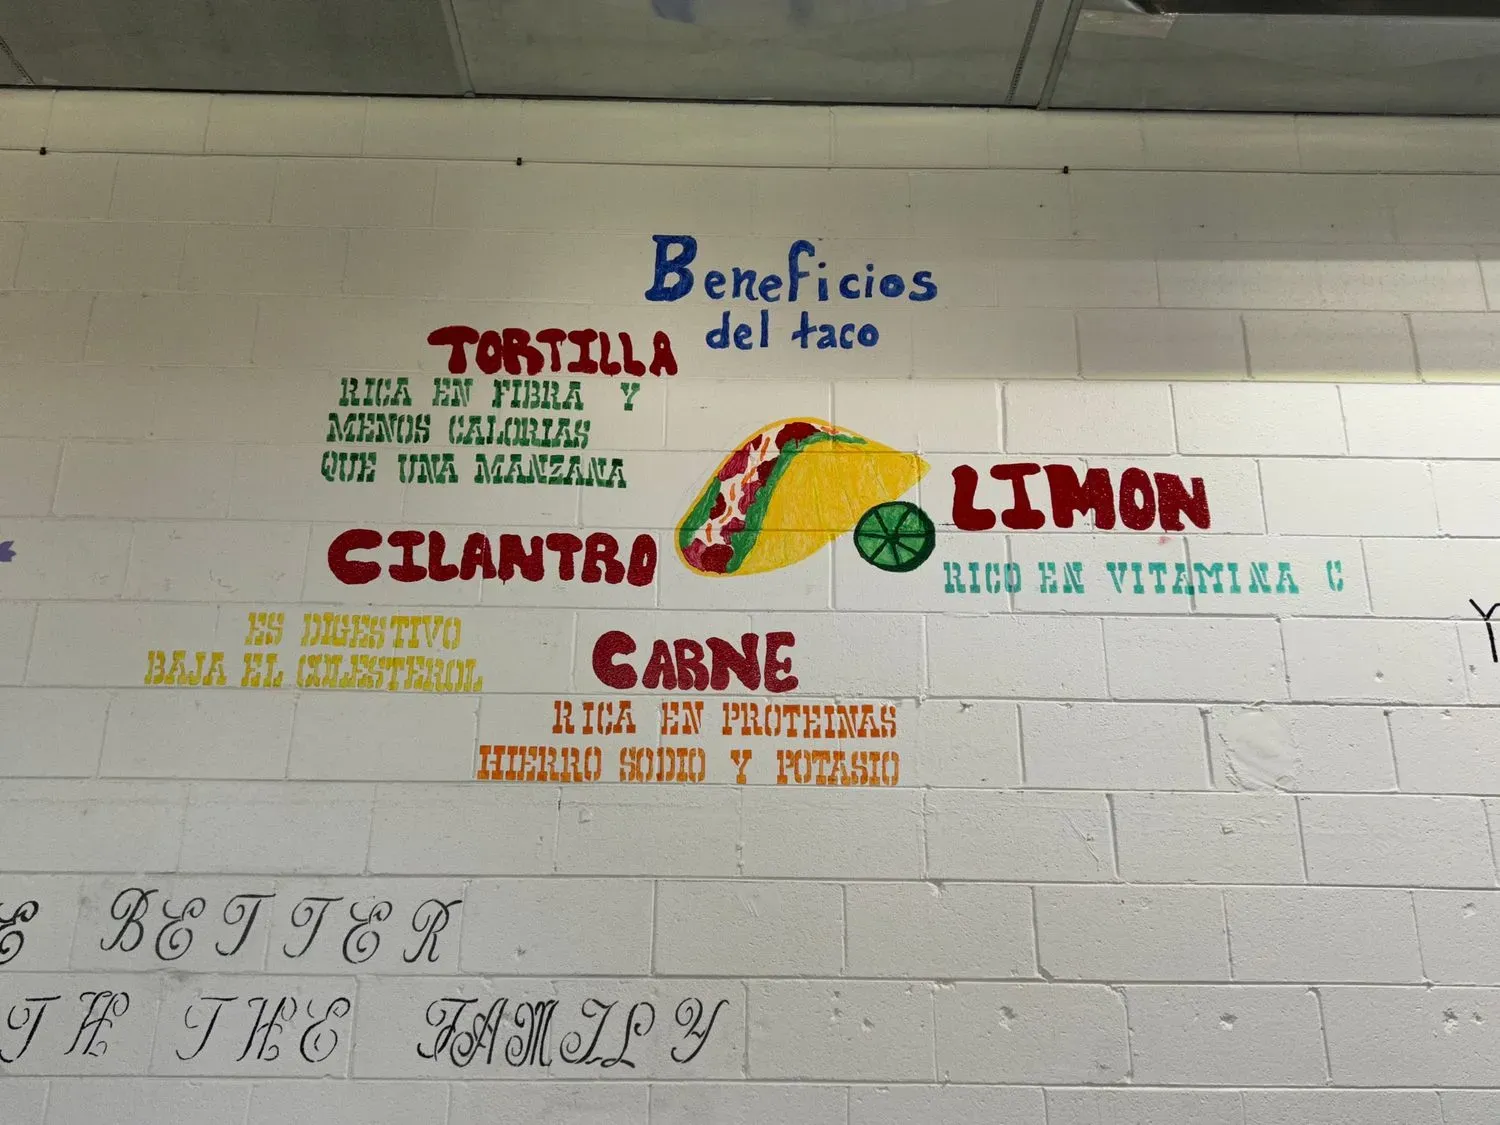 Beneficios
del taco
TORTILLA
RICA EN FIBRA Y
MENOS CALORIAS
QUE UNA MANZANA
LIMON
RICO EN VITAMINA C
CILANTRO
ES DIGESTIVO
BAJA EL COLESTEROL
CARNE
RICA EN PROTEINAS
HIERRO SODIO Y POTASIO
BETTER
THE FAMILY